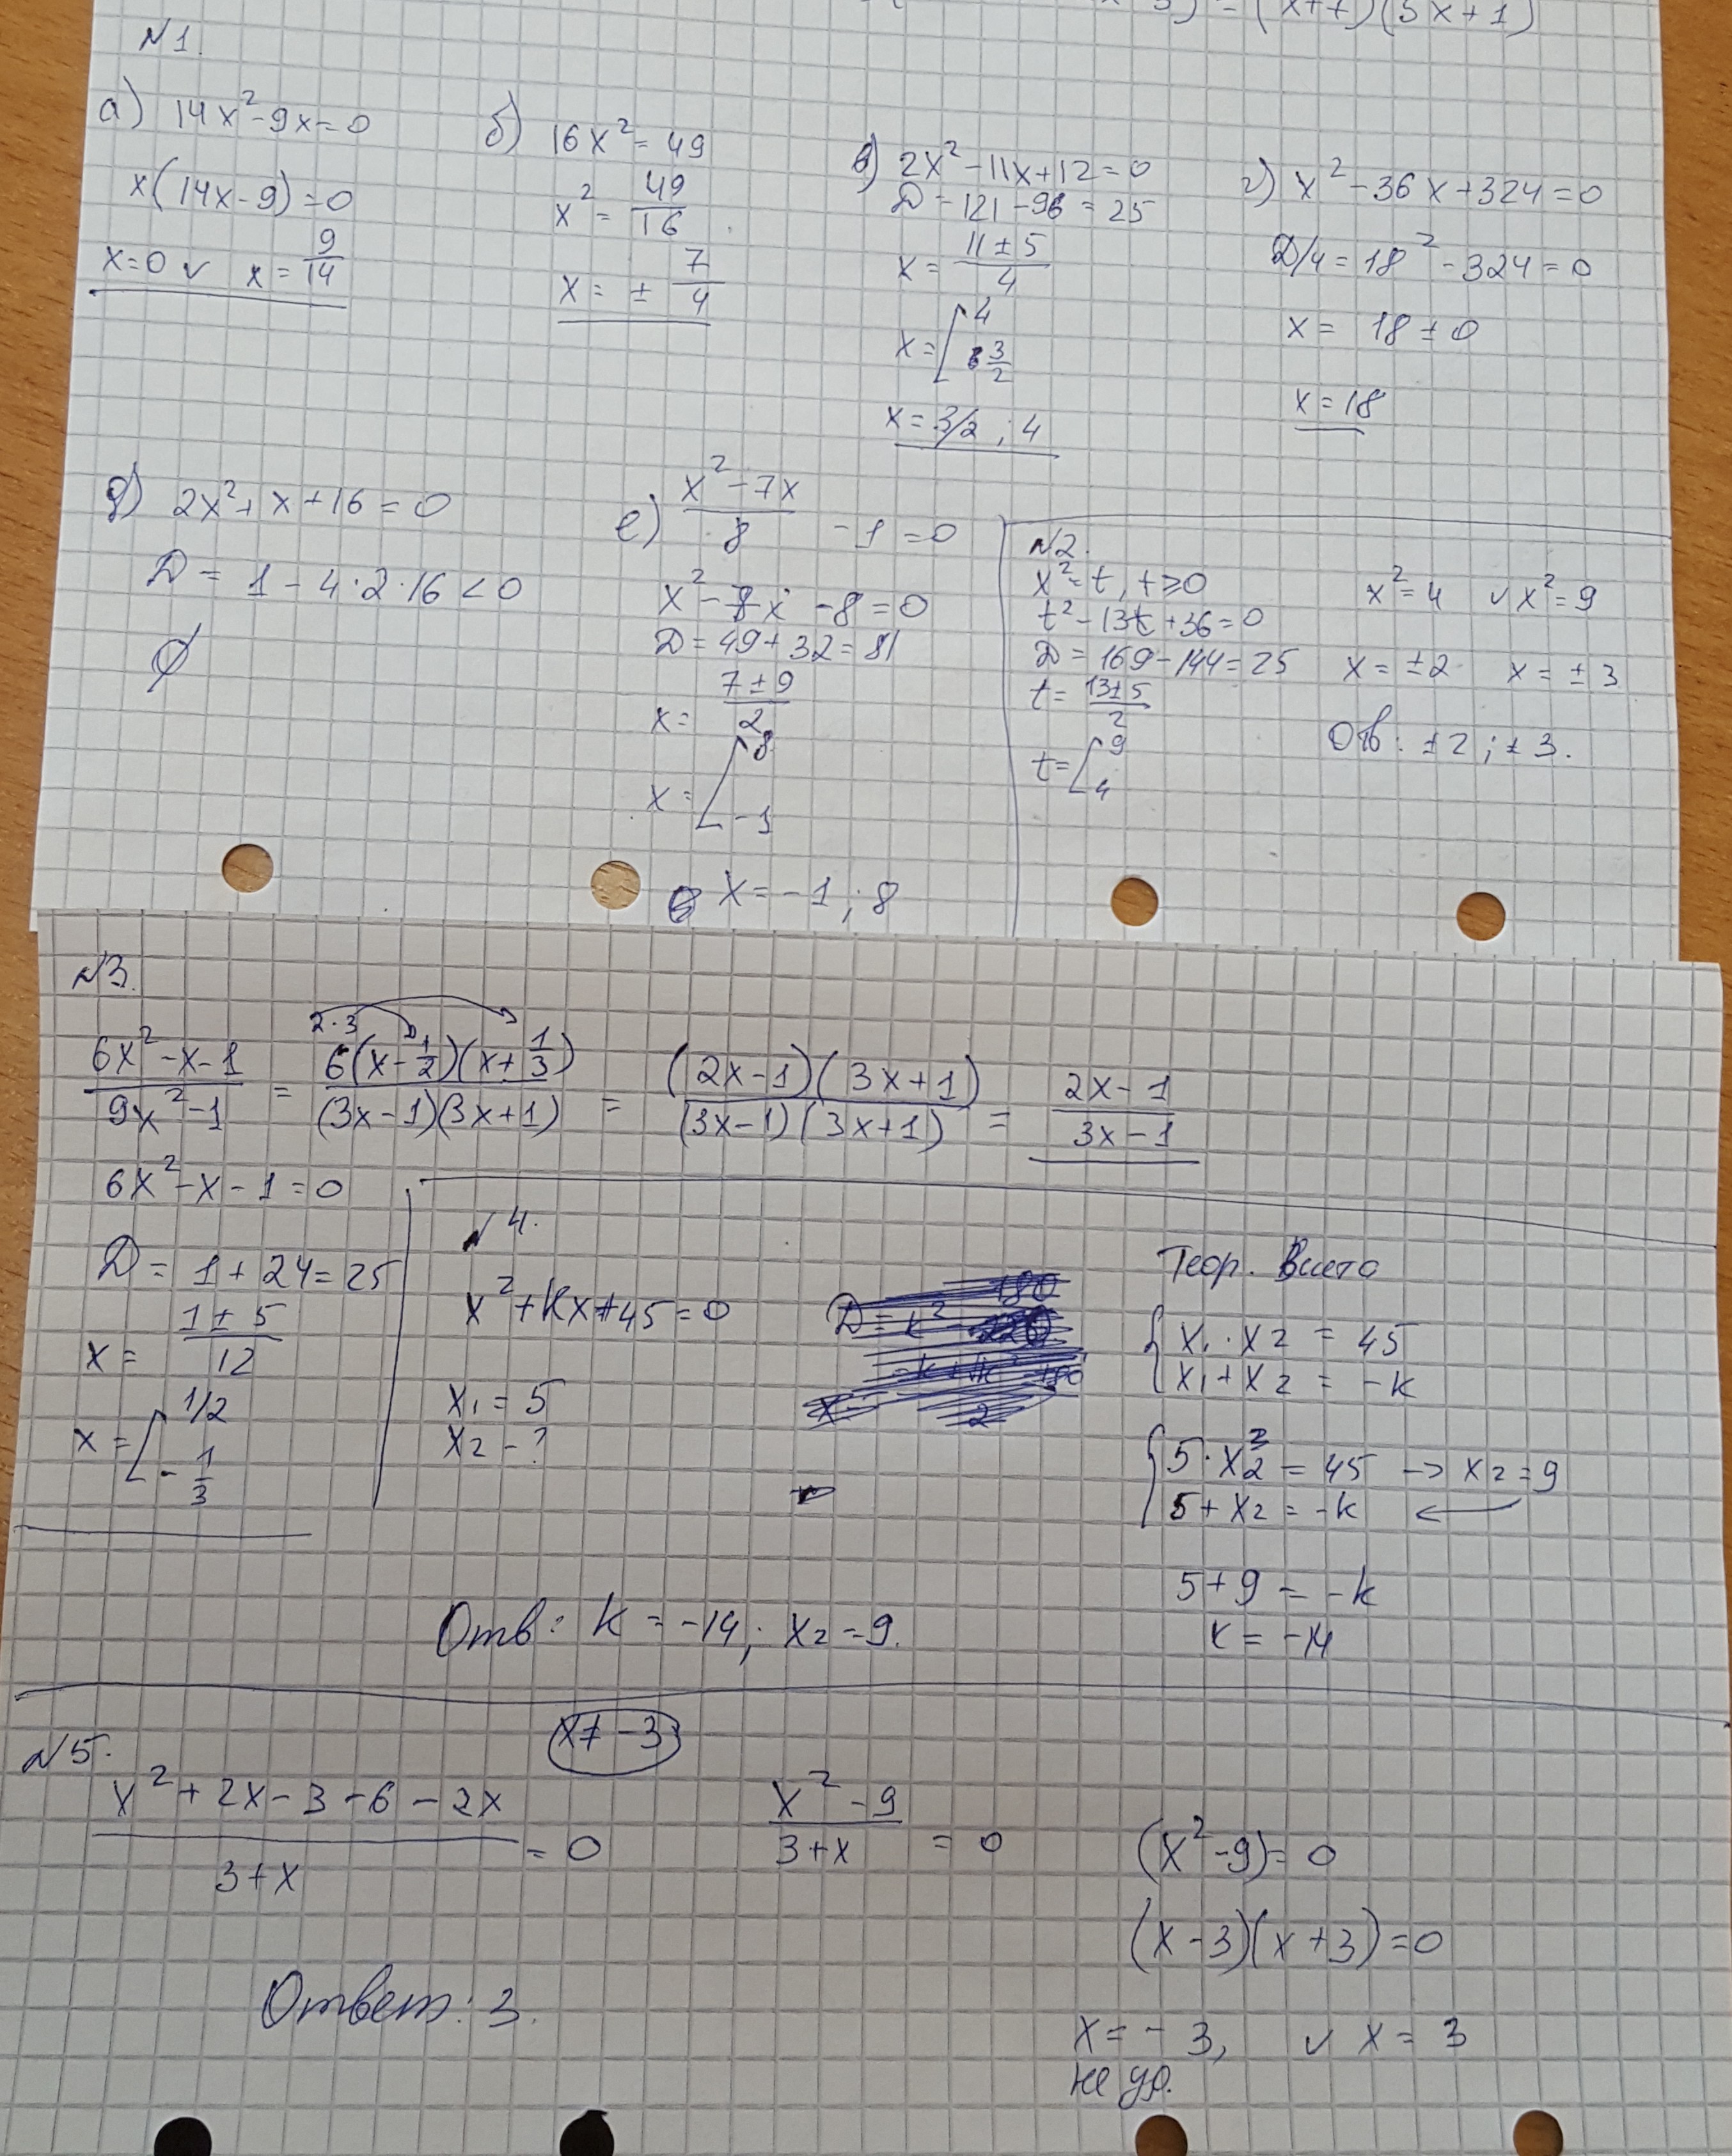 (x+7)(3x+1)
N1.
а) 14x²-9x=0
x(14x-9)=0
x=0 ∨ x= 9/14
б) 16x²=49
x²= 49/16
x= ± 7/4
в) 2x²-11x+12=0
D=121-96=25
x= (11±5)/4
x=[4
3/2
x=3/2; 4
г) x²-36x+324=0
D/4=18²-324=0
x= 18±0
x=18
д) 2x²+x+16=0
D=1-4·2·16<0
∅
е) (x²-7x)/8 -1=0
x²-7x-8=0
D=49+32=81
x= (7±9)/2
x=[8
-1
x=-1; 8
N2.
x²=t, t≥0
t²-13t+36=0
D=169-144=25
t= (13±5)/2
t=[9
4
x²=4 ∨ x²=9
x=±2 x=±3
Отв: ±2; ±3.
N3.
2·3
(6x²-x-1)/(9x²-1) = 6(x-1/2)(x+1/3)/((3x-1)(3x+1)) = (2x-1)(3x+1)/((3x-1)(3x+1)) = (2x-1)/(3x-1)
6x²-x-1=0
D=1+24=25
x= (1±5)/12
x=[1/2
-1/3
N4.
x²+kx+45=0
x₁=5
x₂-?
Теор. Виета
{x₁·x₂=45
x₁+x₂=-k
{5·x₂=45 → x₂=9
5+x₂=-k ←
5+9=-k
k=-14
Отв: k=-14; x₂=9.
N5.
x≠-3
(x²+2x-3-6-2x)/(3+x) =0
(x²-9)/(3+x) =0
(x²-9)=0
(x-3)(x+3)=0
x=-3, ∨ x=3
не уд.
Ответ: 3.